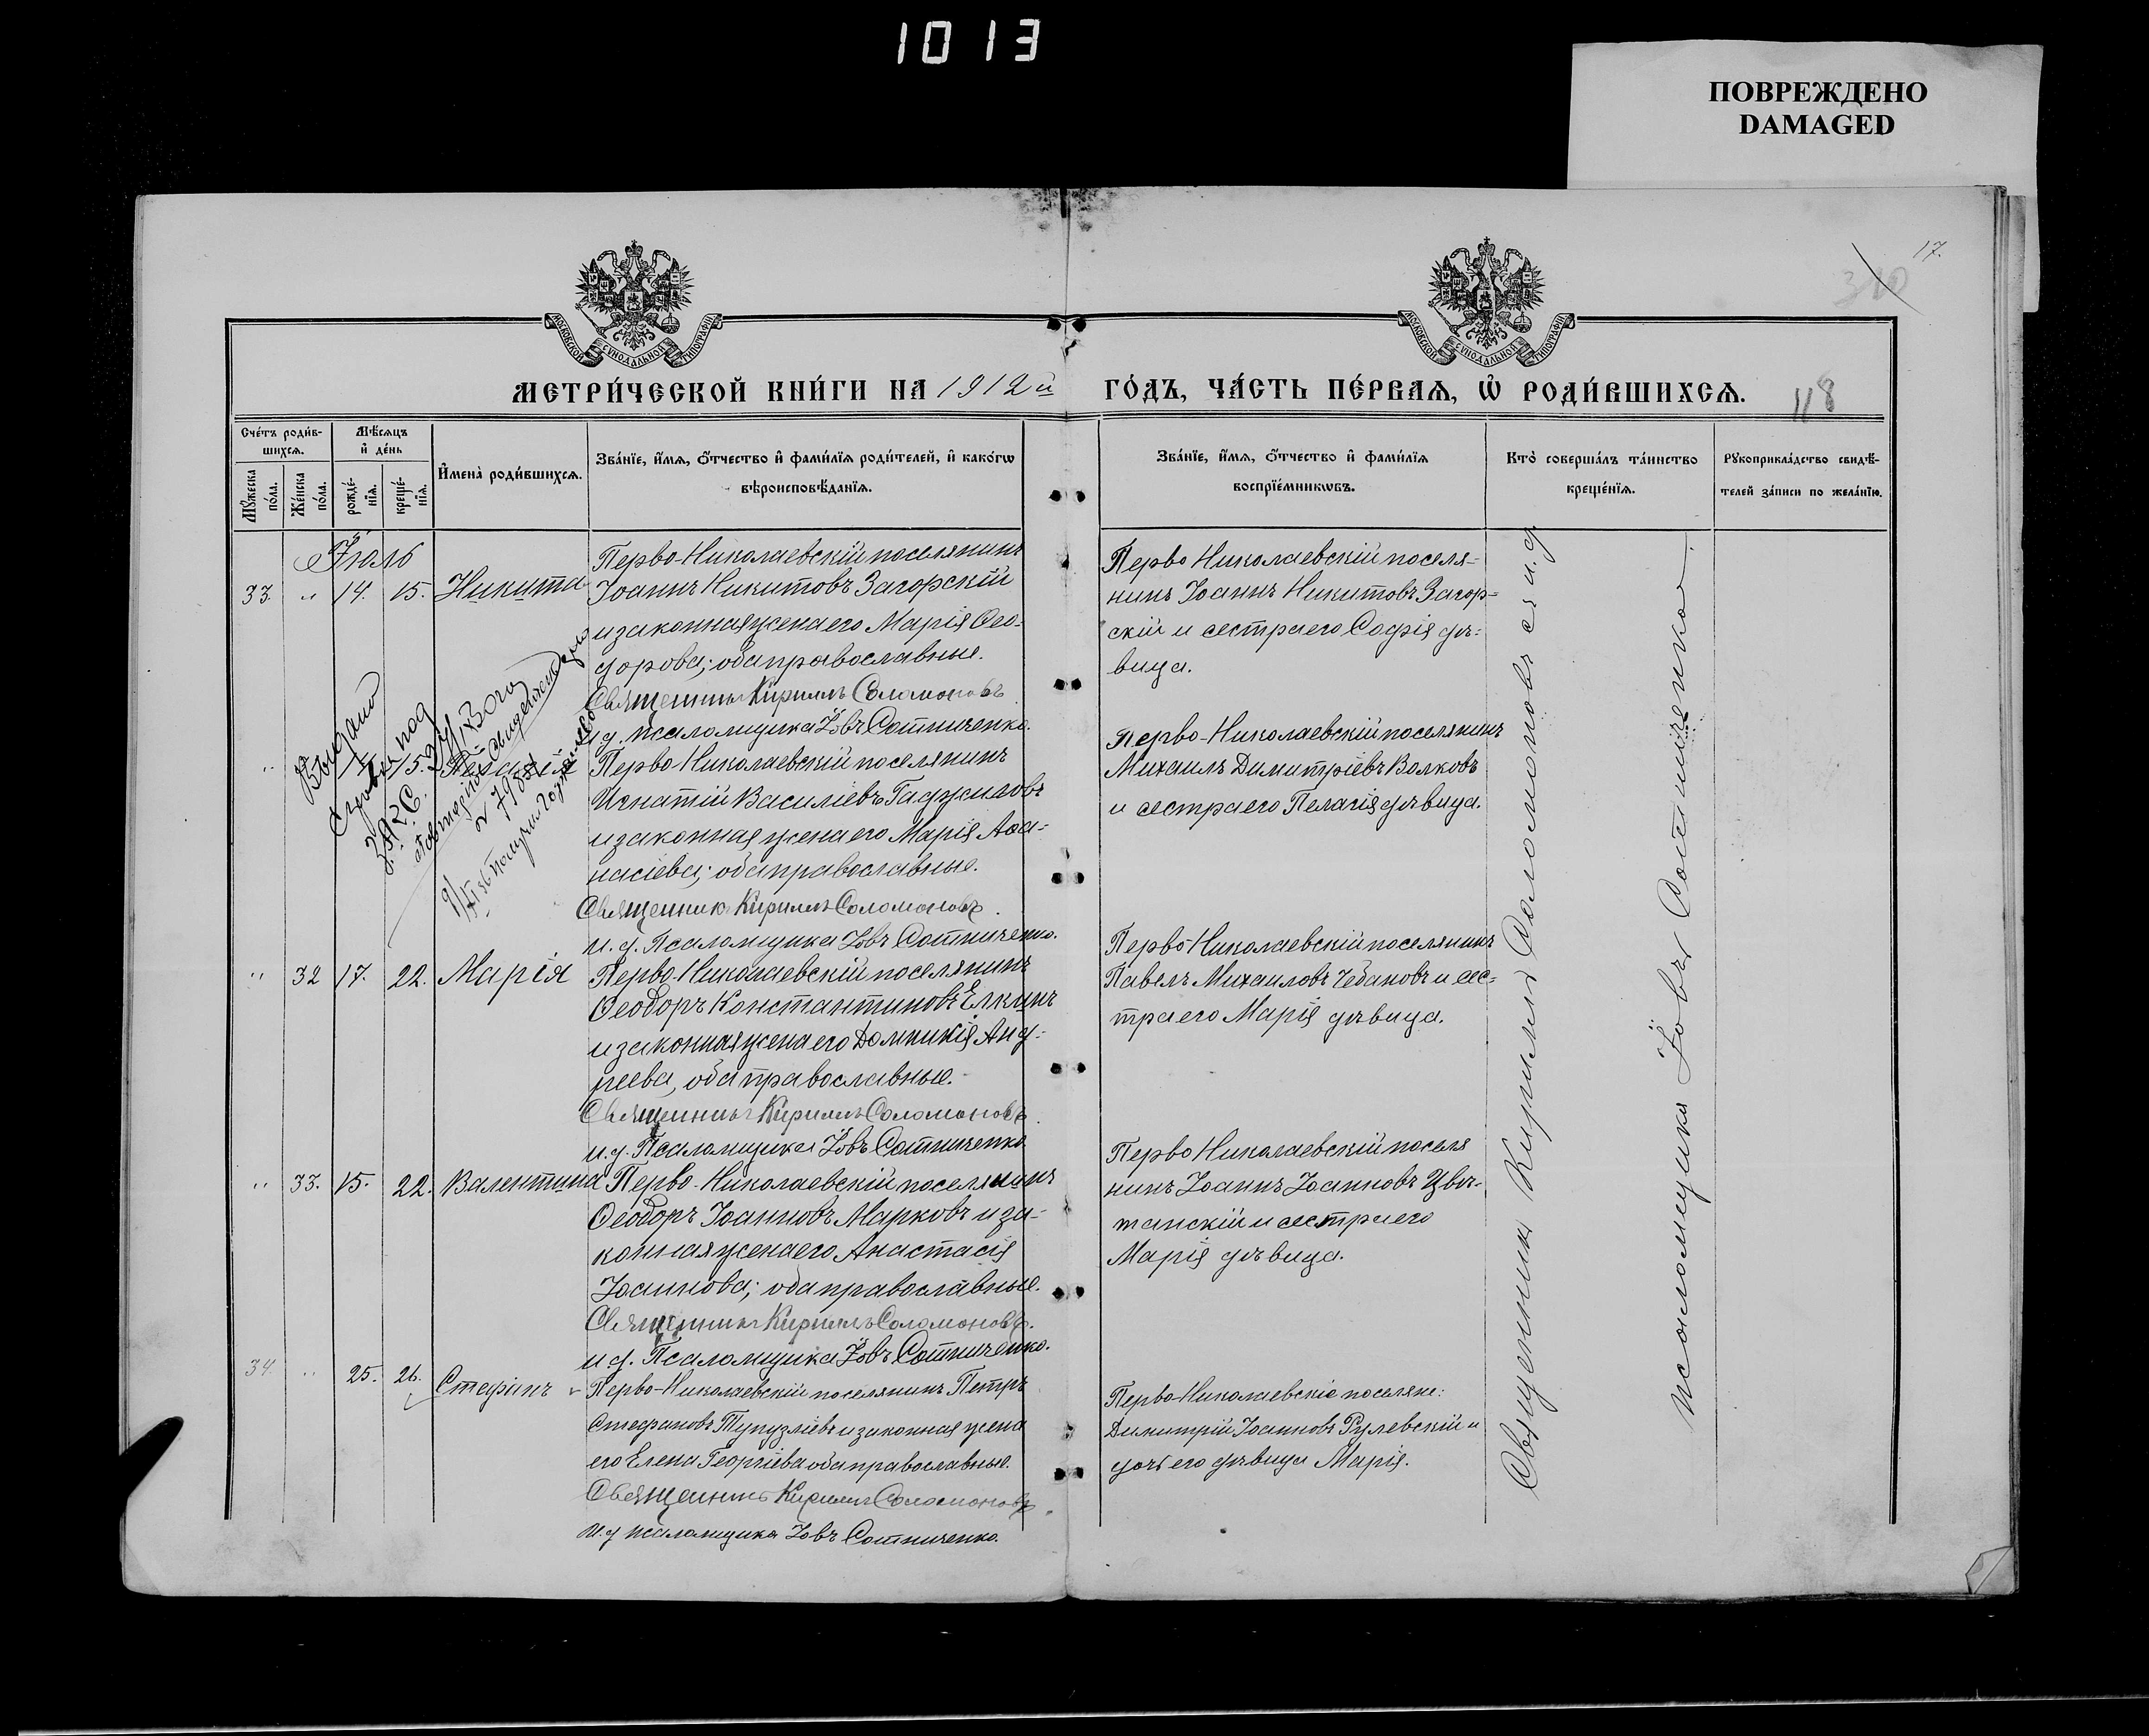 1013
ПОВРЕЖДЕНО
DAMAGED
17.
310
МОСКОВСКОЙ СѴНОДАЛЬНОЙ ТИПОГРАФІИ
МОСКОВСКОЙ СѴНОДАЛЬНОЙ ТИПОГРАФІИ
МЕТРИ́ЧЕСКОЙ КНИ́ГИ НА 1912й ГО́ДЪ, ЧА́СТЬ ПЕ́РВАѦ, Ѡ҆ РОДИ́ВШИХСѦ.
118
Сче́тъ роди́в-
шихсѧ.
Мѣ́сѧцъ
и҆ де́нь
Мꙋ́жеска
по́ла.
Же́нска
по́ла.
рожде́-
нїѧ.
креще́-
нїѧ.
И҆мена̀ роди́вшихсѧ.
Зва́нїе, и҆́мѧ, ѻ҆́тчество и҆ фами́лїѧ роди́телей, и҆ како́гѡ
вѣроисповѣ́данїѧ.
Зва́нїе, и҆́мѧ, ѻ҆́тчество и҆ фами́лїѧ
воспрїе́мникѡвъ.
Кто̀ соверша́лъ та́инство
креще́нїѧ.
Рꙋкоприкла́дство свидѣ́-
телей за́писи по жела́нїю.
Іюль
33. " 14. 15. Никита
Перво-Николаевскій поселянинъ
Іоаннъ Никитовъ Загорскій
и законная жена его Марія Ѳео-
дорова; оба православные.
Священникъ Кириллъ Соломоновъ
и.д. псаломщика Іовъ Сотниченко.
Перво Николаевскій поселя-
нинъ Іоаннъ Никитовъ Загор-
скій и сестра его Софія дѣ-
вица.
" 15.
Выдано
ЗАГС.
Перво-Николаевскій поселянинъ
Игнатій Василіевъ Гаджиловъ
и законная жена его Марія Аѳа-
насіева; оба православные.
Священникъ Кириллъ Соломоновъ.
и.д. Псаломщика Іовъ Сотниченко.
Перво-Николаевскій поселянинъ
Михаилъ Димитріевъ Волковъ
и сестра его Пелагія дѣвица.
" 32 17. 22. Марія
Перво-Николаевскій поселянинъ
Ѳеодоръ Константиновъ Елкинъ
и законная жена его Домникія Анд-
реева, оба православные.
Священникъ Кириллъ Соломоновъ.
и.д. Псаломщика Іовъ Сотниченко
Перво-Николаевскій поселянинъ
Павелъ Михаиловъ Чебановъ и сес-
тра его Марія дѣвица.
" 33. 15. 22. Валентина
Перво-Николаевскій поселянинъ
Ѳеодоръ Іоанновъ Марковъ и за-
конная жена его Анастасія
Іоаннова; оба православные.
Священникъ Кириллъ Соломоновъ.
и.д. Псаломщика Іовъ Сотниченко.
Перво Николаевскій поселя
нинъ Іоаннъ Іоанновъ Цвѣ-
танскій и сестра его
Марія дѣвица.
34. " 25. 26. Стефанъ
Перво-Николаевскій поселянинъ Петръ
Стефановъ Тупузліевъ и законная жена
его Елена Георгіева оба православные.
Священникъ Кириллъ Соломоновъ
и.д псаломщика Іовъ Сотниченко.
Перво-Николаевскіе поселяне:
Димитрій Іоанновъ Рулевскій и
дочь его дѣвица Марія.
Священникъ Кириллъ Соломоновъ съ и.д.
псаломщика Іовъ Сотниченко.